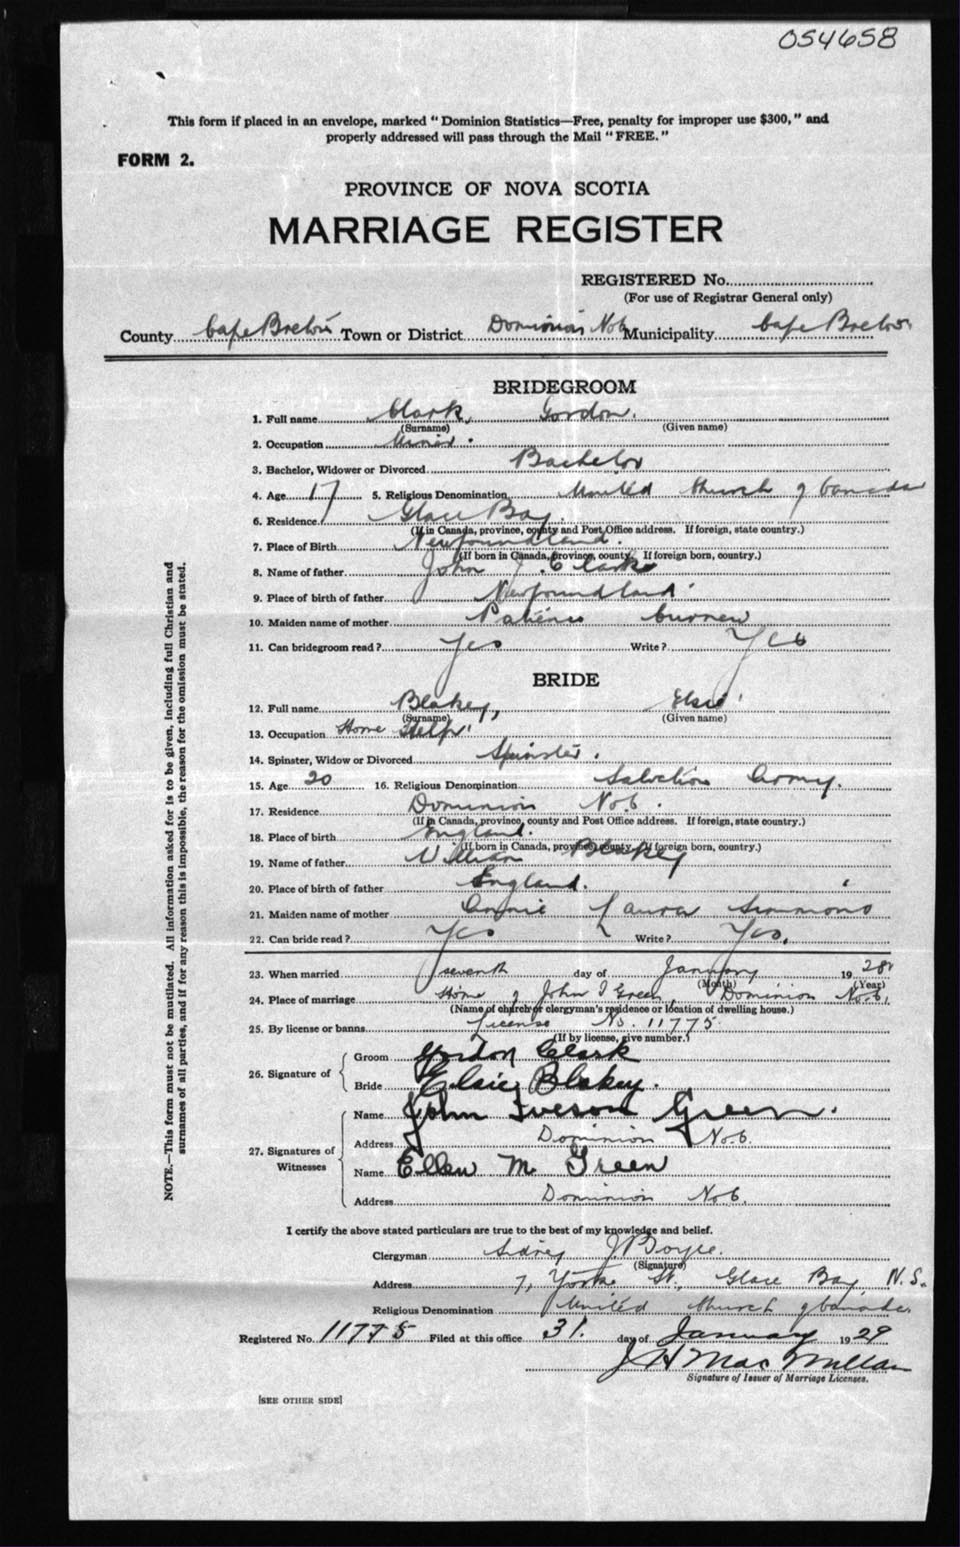 054658
This form if placed in an envelope, marked "Dominion Statistics—Free, penalty for improper use $300," and
properly addressed will pass through the Mail "FREE."
FORM 2.
PROVINCE OF NOVA SCOTIA
MARRIAGE REGISTER
REGISTERED No.
(For use of Registrar General only)
County Cape Breton Town or District Dominion No 6 Municipality Cape Breton
BRIDEGROOM
1. Full name Clark, Gordon.
(Surname) (Given name)
2. Occupation Miner.
3. Bachelor, Widower or Divorced Bachelor
4. Age 17 5. Religious Denomination United Church of Canada
6. Residence Glace Bay.
(If in Canada, province, county and Post Office address. If foreign, state country.)
7. Place of Birth Newfoundland.
(If born in Canada, province, county. If foreign born, country.)
8. Name of father John J. Clarke
9. Place of birth of father Newfoundland
10. Maiden name of mother Patience
11. Can bridegroom read? Yes Write? Yes
BRIDE
12. Full name Blakey, Elsie
(Surname) (Given name)
13. Occupation Home Help
14. Spinster, Widow or Divorced Spinster.
15. Age 20 16. Religious Denomination Salvation Army.
17. Residence Dominion No 6.
(If in Canada, province, county and Post Office address. If foreign, state country.)
18. Place of birth England.
(If born in Canada, province, county. If foreign born, country.)
19. Name of father William Blakey
20. Place of birth of father England.
21. Maiden name of mother Annie Laura Simmons
22. Can bride read? Yes Write? Yes.
23. When married seventh day of January 1928
(Month) (Year)
24. Place of marriage Home of John I Green, Dominion No. 6.
(Name of church or clergyman's residence or location of dwelling house.)
25. By license or banns License No. 11775
(If by license, give number.)
26. Signature of Groom Gordon Clark
Bride Elsie Blakey.
27. Signatures of Witnesses Name John Iveson Green.
Address Dominion No 6.
Name Ellen M. Green
Address Dominion No 6.
I certify the above stated particulars are true to the best of my knowledge and belief.
Clergyman Sidney J. Boyce.
(Signature)
Address 7, Yorke St., Glace Bay, N.S.
Religious Denomination United Church of Canada.
Registered No. 11775 Filed at this office 31. day of January 1929
J H MacMillan
Signature of Issuer of Marriage Licenses.
[SEE OTHER SIDE]
NOTE.—This form must not be mutilated. All information asked for is to be given, including full Christian and
surnames of all parties, and if for any reason this is impossible, the reason for the omission must be stated.